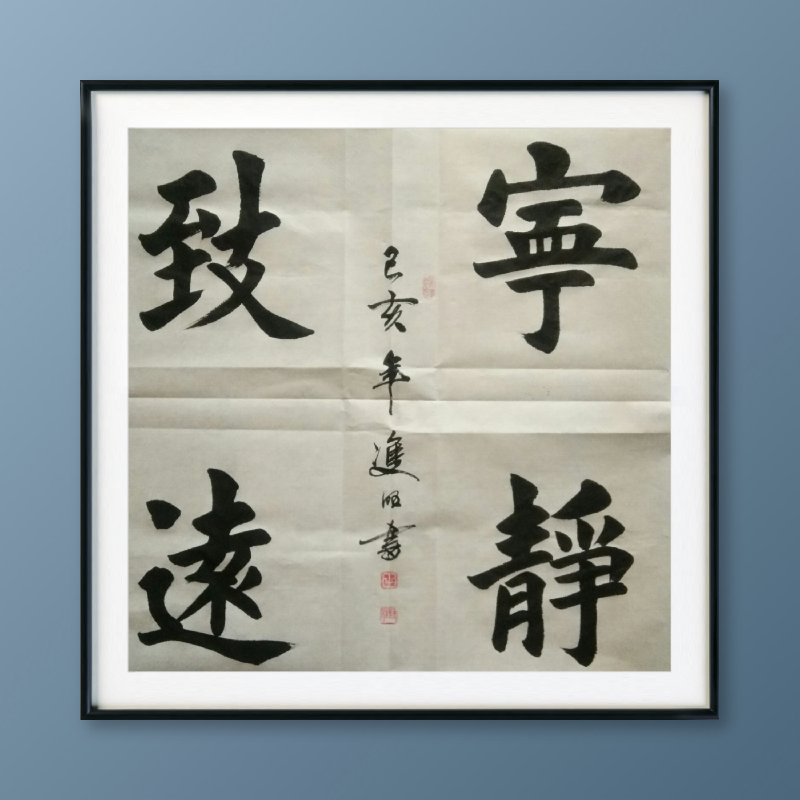 寧靜
致遠
己亥年進明書